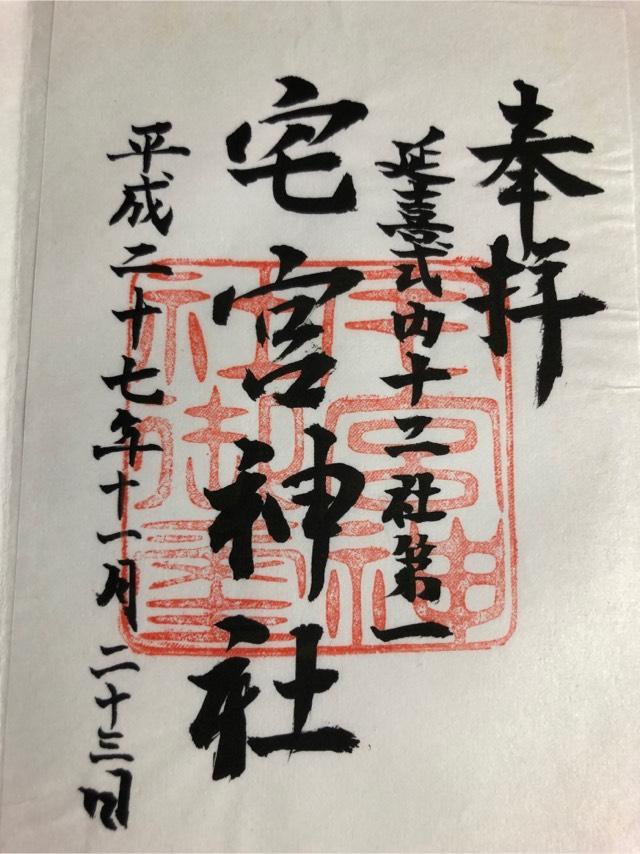 奉拝
延喜式内十二社第一
宅宮神社
平成二十七年十一月二十三日
宅宮神
社御璽